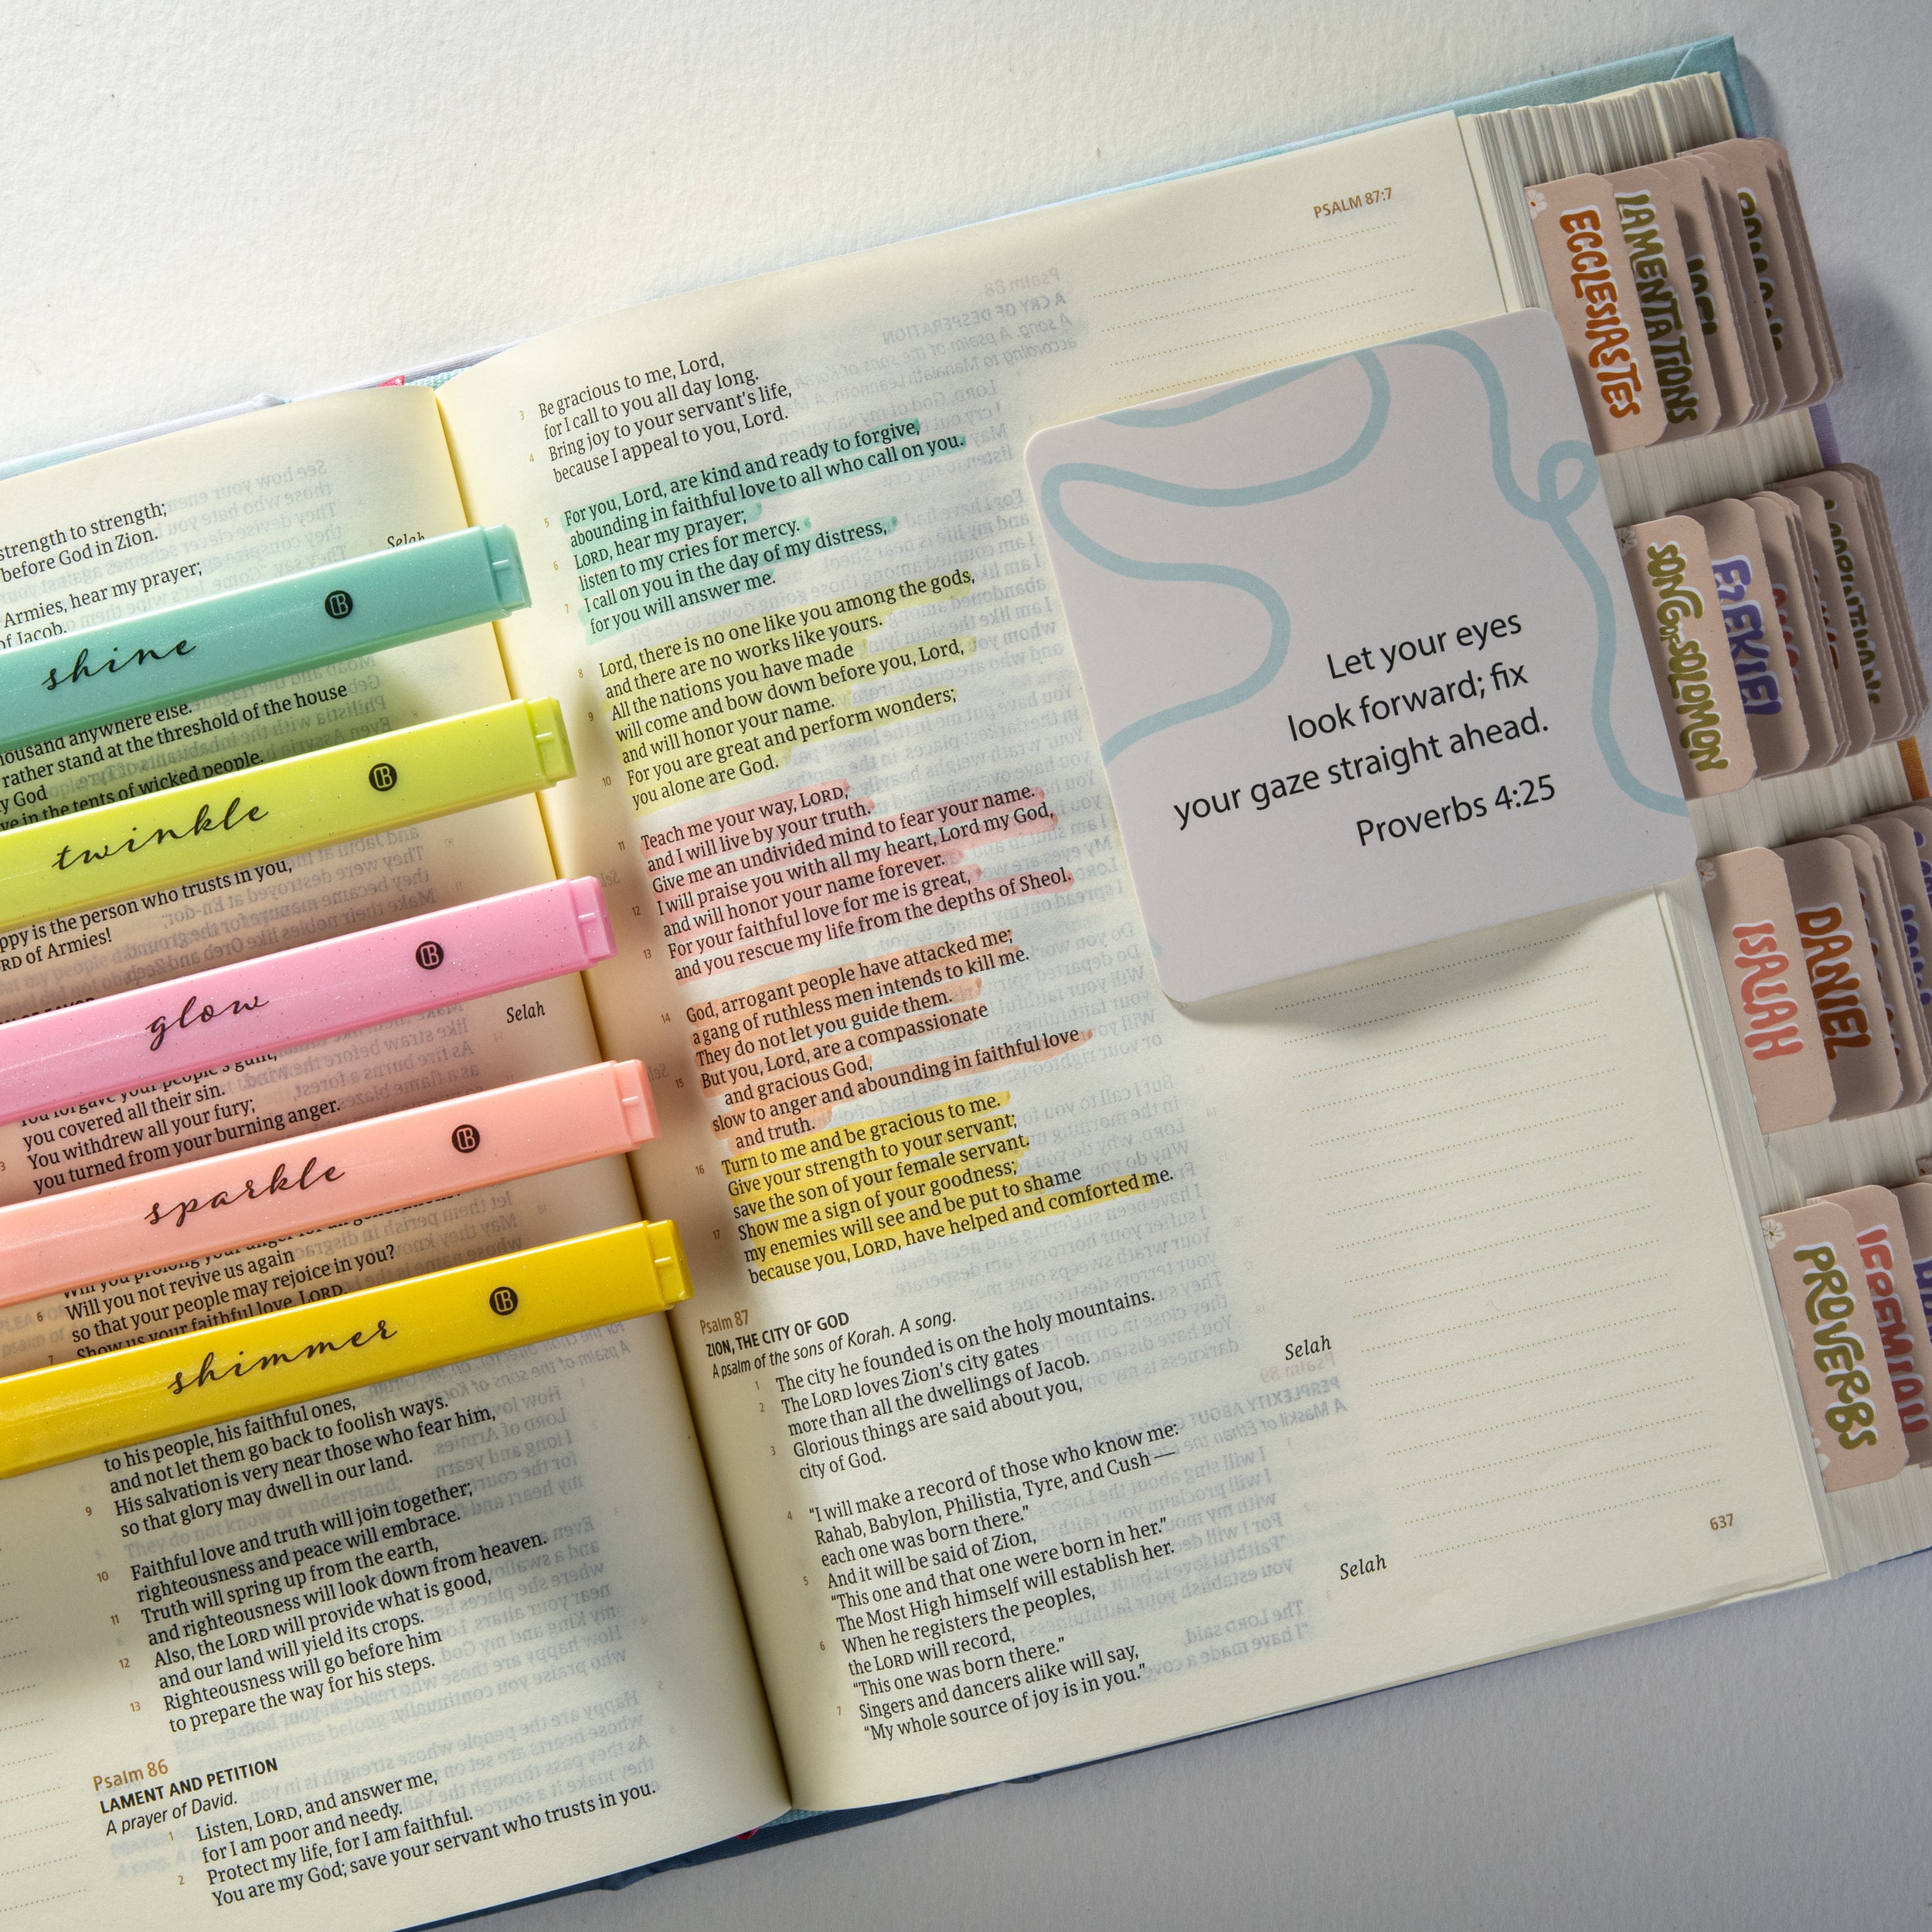 strength to strength;
before God in Zion.
Selah
Armies, hear my prayer;
of Jacob.
shine
thousand anywhere else.
rather stand at the threshold of the house
my God
live in the tents of wicked people.
twinkle
Happy is the person who trusts in you,
LORD of Armies!
glow
Selah
You forgave your people's guilt;
you covered all their sin.
3 You withdrew all your fury;
you turned from your burning anger.
sparkle
Will you prolong your anger for all generations?
6 Will you not revive us again
so that your people may rejoice in you?
7 Show us your faithful love, LORD,
shimmer
to his people, his faithful ones,
and not let them go back to foolish ways.
9 His salvation is very near those who fear him,
so that glory may dwell in our land.
10 Faithful love and truth will join together;
righteousness and peace will embrace.
11 Truth will spring up from the earth,
and righteousness will look down from heaven.
12 Also, the LORD will provide what is good,
and our land will yield its crops.
13 Righteousness will go before him
to prepare the way for his steps.
Psalm 86
LAMENT AND PETITION
A prayer of David.
1 Listen, LORD, and answer me,
for I am poor and needy.
2 Protect my life, for I am faithful.
You are my God; save your servant who trusts in you.
PSALM 87:7
3 Be gracious to me, Lord,
for I call to you all day long.
4 Bring joy to your servant's life,
because I appeal to you, Lord.
5 For you, Lord, are kind and ready to forgive,
abounding in faithful love to all who call on you.
6 LORD, hear my prayer;
listen to my cries for mercy.
7 I call on you in the day of my distress,
for you will answer me.
8 Lord, there is no one like you among the gods,
and there are no works like yours.
9 All the nations you have made
will come and bow down before you, Lord,
and will honor your name.
10 For you are great and perform wonders;
you alone are God.
11 Teach me your way, LORD,
and I will live by your truth.
Give me an undivided mind to fear your name.
12 I will praise you with all my heart, Lord my God,
and will honor your name forever.
13 For your faithful love for me is great,
and you rescue my life from the depths of Sheol.
14 God, arrogant people have attacked me;
a gang of ruthless men intends to kill me.
They do not let you guide them.
15 But you, Lord, are a compassionate
and gracious God,
slow to anger and abounding in faithful love
and truth.
16 Turn to me and be gracious to me.
Give your strength to your servant;
save the son of your female servant.
17 Show me a sign of your goodness;
my enemies will see and be put to shame
because you, LORD, have helped and comforted me.
Psalm 87
ZION, THE CITY OF GOD
A psalm of the sons of Korah. A song.
1 The city he founded is on the holy mountains.
2 The LORD loves Zion's city gates
more than all the dwellings of Jacob.
3 Glorious things are said about you,
city of God. Selah
4 "I will make a record of those who know me:
Rahab, Babylon, Philistia, Tyre, and Cush —
each one was born there."
5 And it will be said of Zion,
"This one and that one were born in her."
The Most High himself will establish her.
6 When he registers the peoples,
the LORD will record,
"This one was born there." Selah
7 Singers and dancers alike will say,
"My whole source of joy is in you."
637
Let your eyes
look forward; fix
your gaze straight ahead.
Proverbs 4:25
ECCLESIASTES
LAMENTATIONS
JOEL
SONG OF SOLOMON
EZEKIEL
ISAIAH
DANIEL
PROVERBS
JEREMIAH